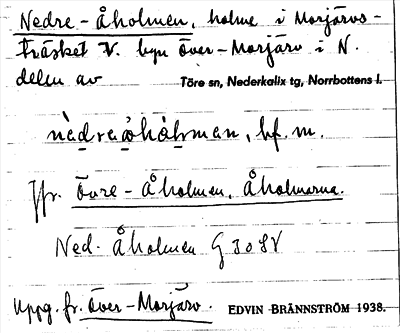 Nedre-Åholmen, holme i Morjärvs-
träsket V. byn Över-Morjärv i N.
delen av Töre sn, Nederkalix tg, Norrbottens l.
nèdreåhòlmen, bf. m.
Jfr. Övre-Åholmen, Åholmarna.
Ned. Åholmen G 30 SV
Uppg. fr. Över-Morjärv. EDVIN BRÄNNSTRÖM 1938.